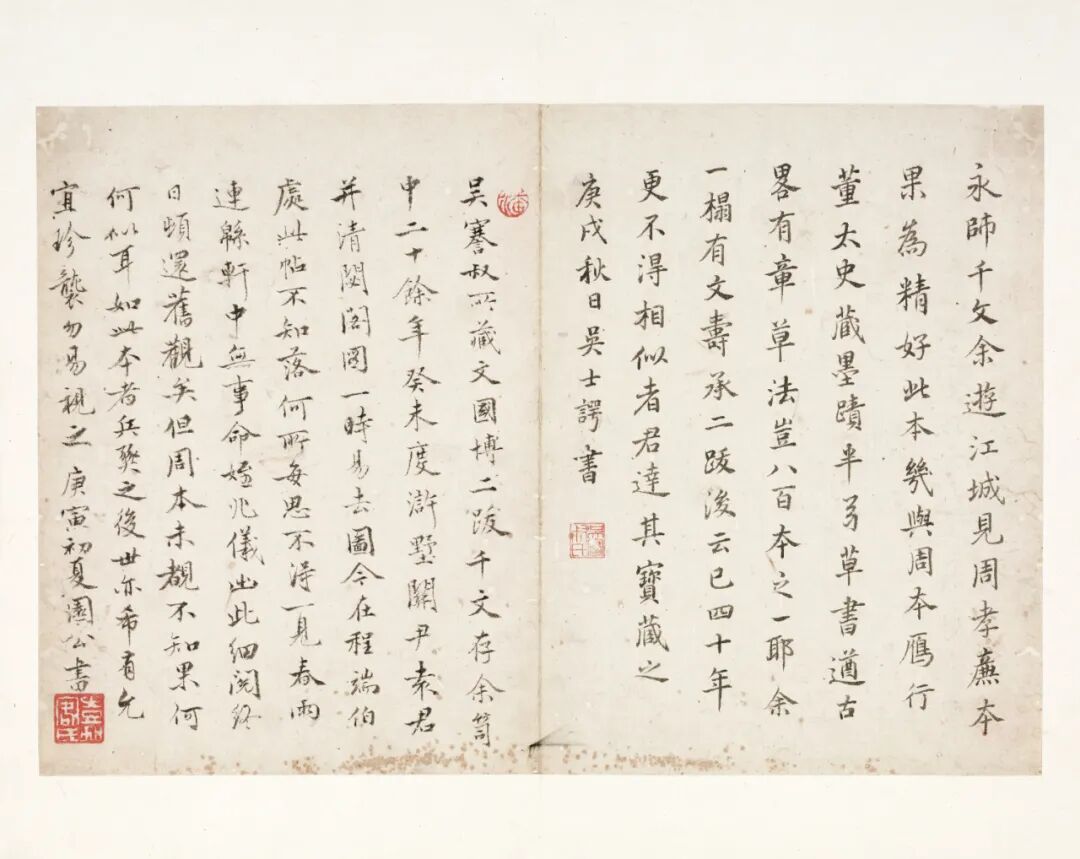 永師千文余遊江城見周孝廉本
果為精好此本幾與周本鴈行
董太史藏墨蹟半弓草書遒古
畧有章草法豈八百本之一耶余
一榻有文壽承二跋後云已四十年
更不得相似者君達其寶藏之
庚戌秋日吳士諤書
吴謇叔所藏文國博二跋千文存余笥
中二十餘年癸未度滸墅關尹袁君
并清閟閣圖一時易去圖今在程端伯
處此帖不知落何所每思不得一見春雨
連緜軒中無事命姪兆儀出此細閱終
日頓還舊觀矣但周本未覩不知果何
何似耳如此本者兵燹之後世亦希有允
宜珍襲勿易視之庚寅初夏園公書